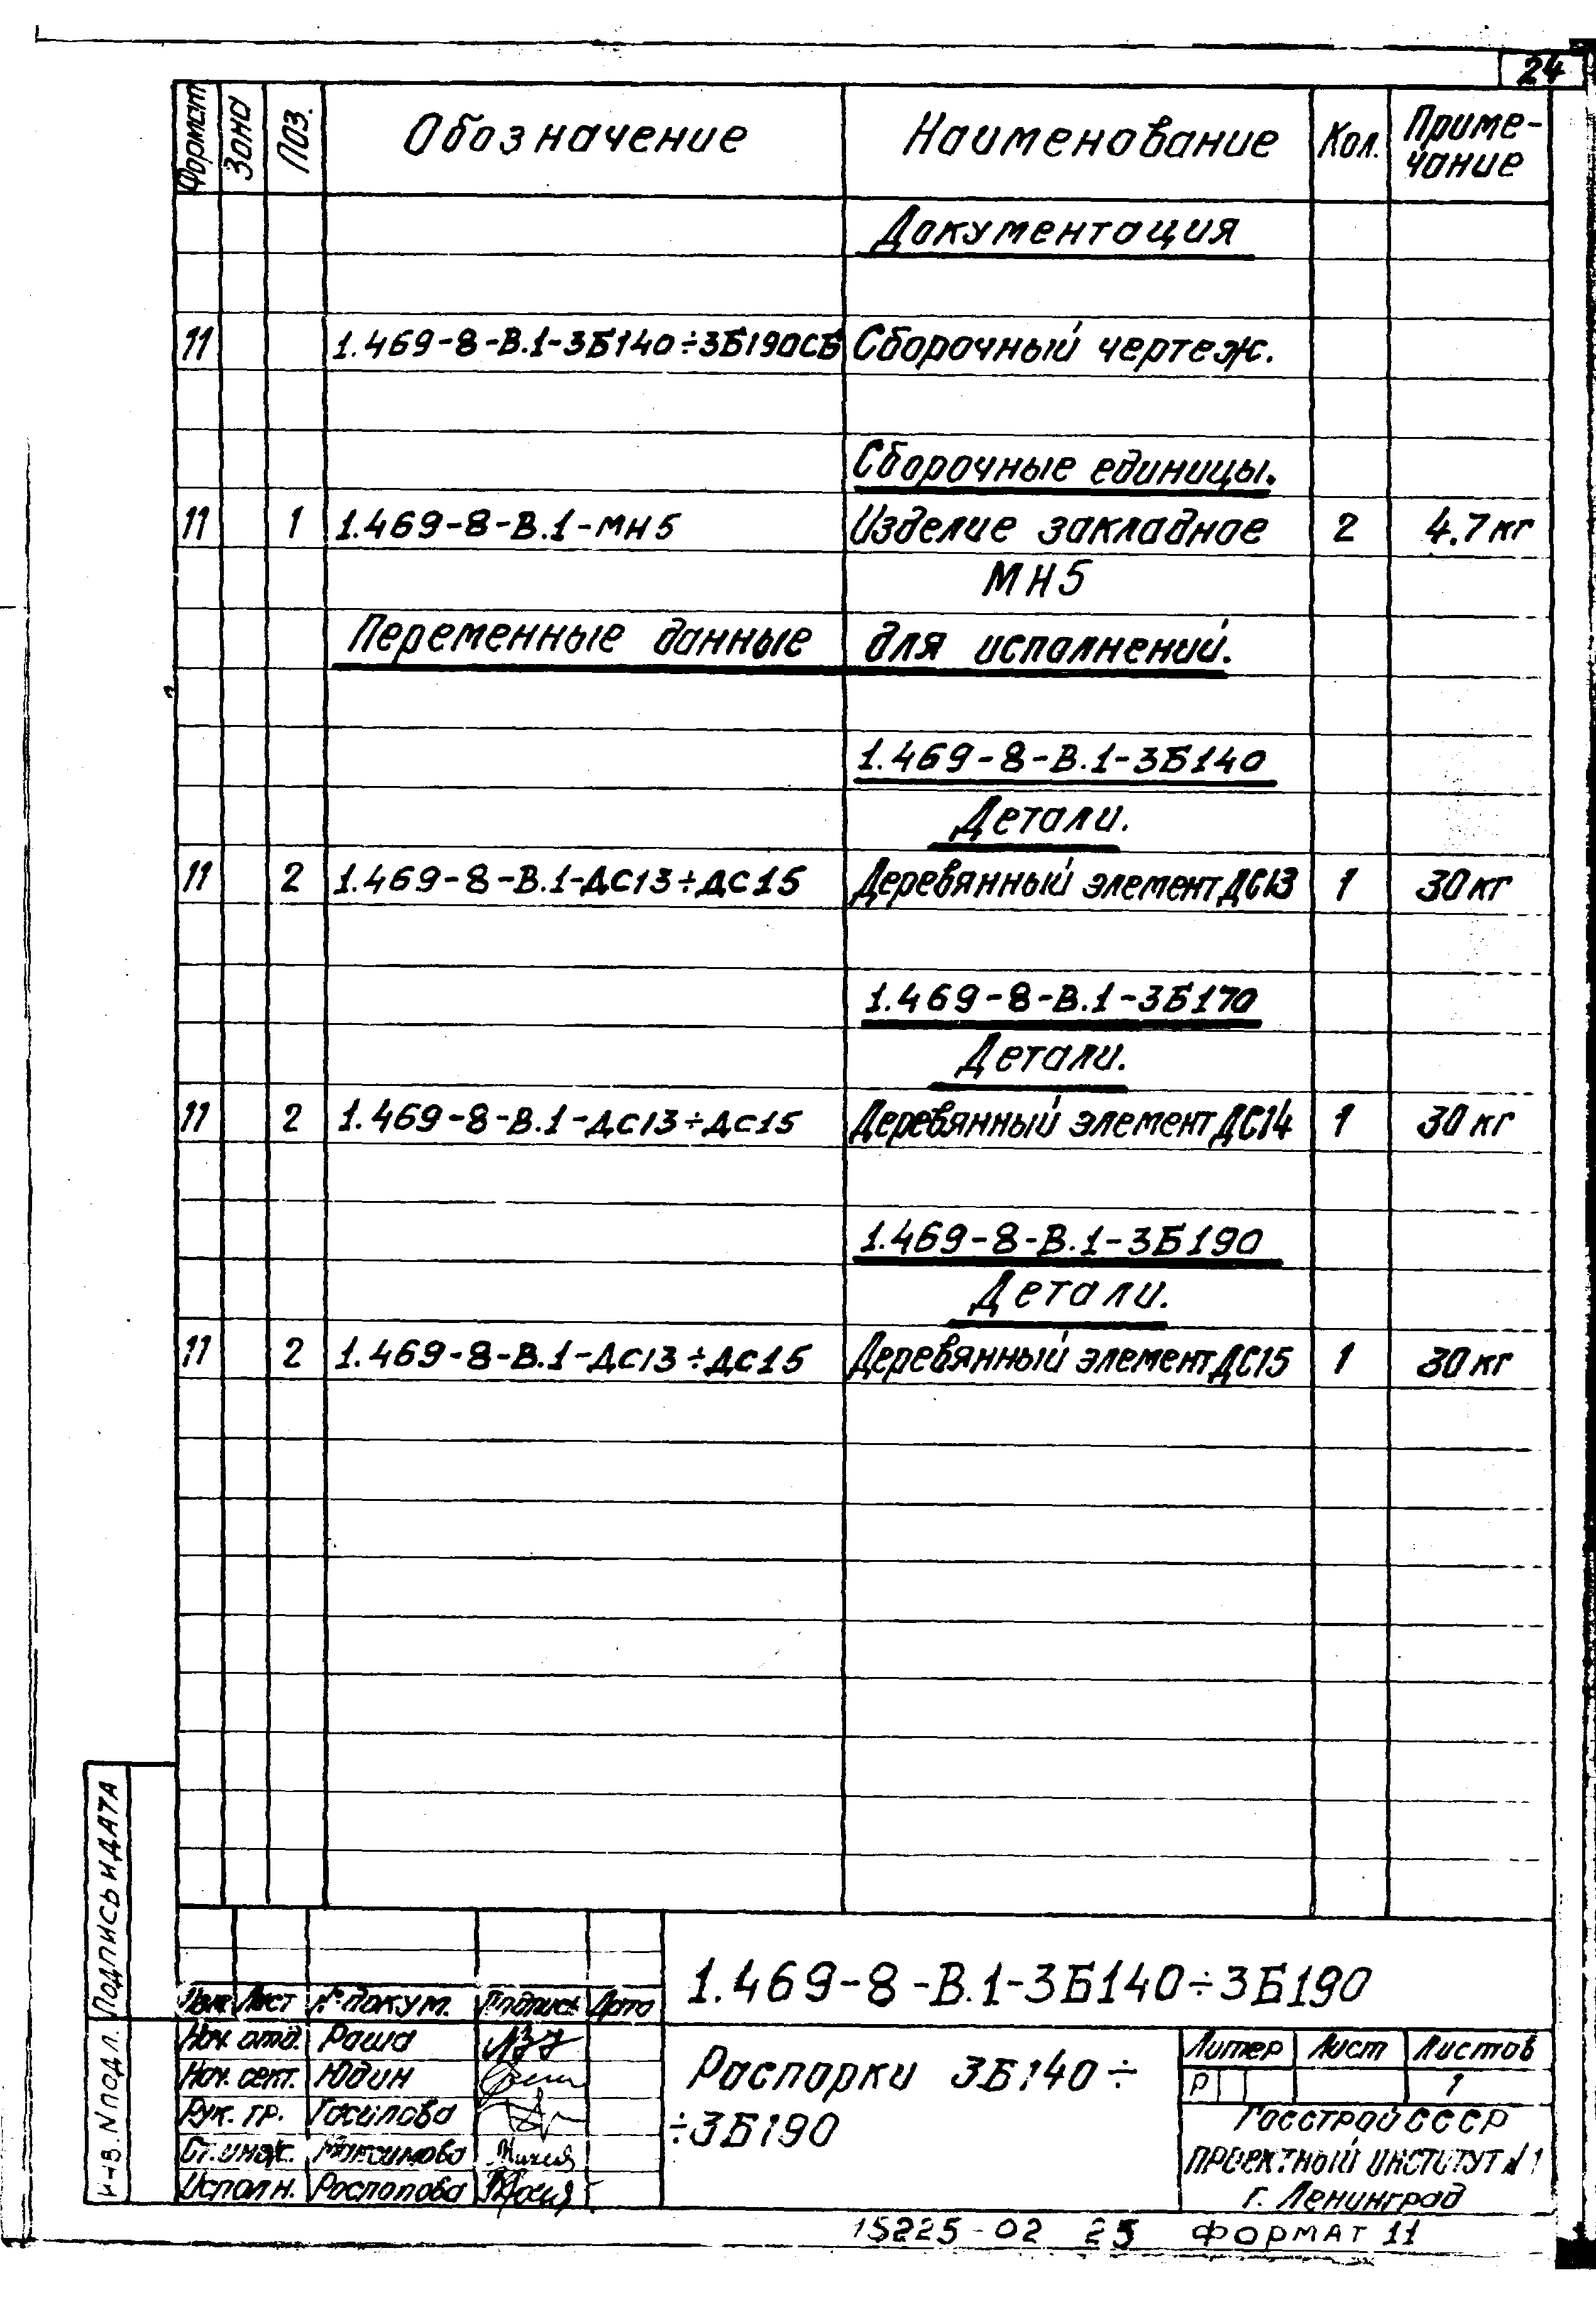 24
Формат Зона Поз. Обозначение Наименование Кол. Приме-
чание
Документация
11 1.469-8-В.1-3Б140÷3Б190СБ Сборочный чертеж.
Сборочные единицы.
11 1 1.469-8-В.1-МН5 Изделие закладное 2 4.7кг
МН5
Переменные данные для исполнений.
1.469-8-В.1-3Б140
Детали.
11 2 1.469-8-В.1-ДС13÷ДС15 Деревянный элемент ДС13 1 30кг
1.469-8-В.1-3Б170
Детали.
11 2 1.469-8-В.1-ДС13÷ДС15 Деревянный элемент ДС14 1 30кг
1.469-8-В.1-3Б190
Детали.
11 2 1.469-8-В.1-ДС13÷ДС15 Деревянный элемент ДС15 1 30кг
Подпись и дата
Инв. N подл.
1.469-8-В.1-3Б140÷3Б190
Изм Лист № докум. Подпись Дата
Нач. отд. Раша
Нач. сект. Юдин
Рук. гр. Гасилова
Ст. инж. Максимова
Исполн. Распопова
Распорки 3Б140÷
÷3Б190
Литер Лист Листов
Р 1
Госстрой СССР
Проектный институт №1
г. Ленинград
15225-02 25 Формат 11